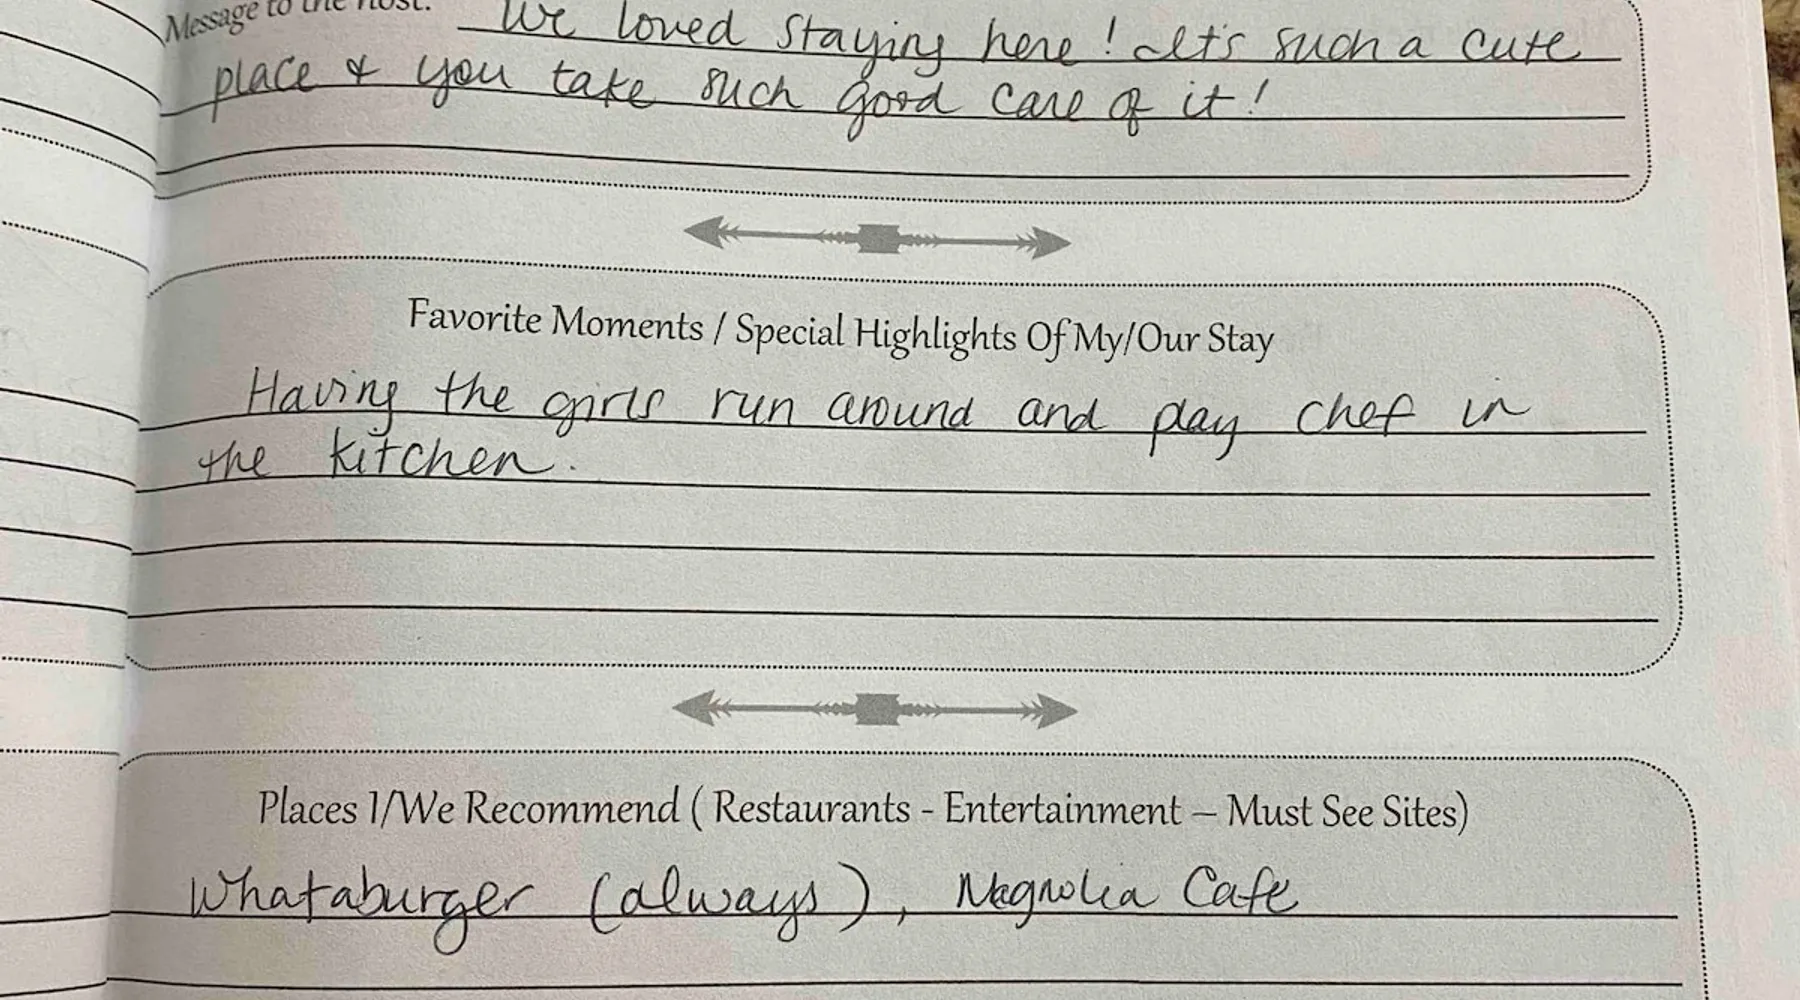 Message to the host: We loved staying here! It's such a cute
place & you take such good care of it!
Favorite Moments / Special Highlights Of My/Our Stay
Having the girls run around and play chef in
the kitchen.
Places I/We Recommend ( Restaurants - Entertainment – Must See Sites)
Whataburger (always), Magnolia Cafe